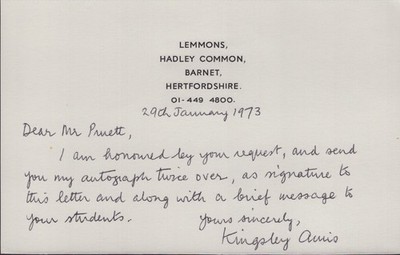 LEMMONS,
HADLEY COMMON,
BARNET,
HERTFORDSHIRE.
01-449 4800.
29th January 1973
Dear Mr Pruett,
I am honoured by your request, and send
you my autograph twice over, as signature to
this letter and along with a brief message to
your students.
Yours sincerely,
Kingsley Amis